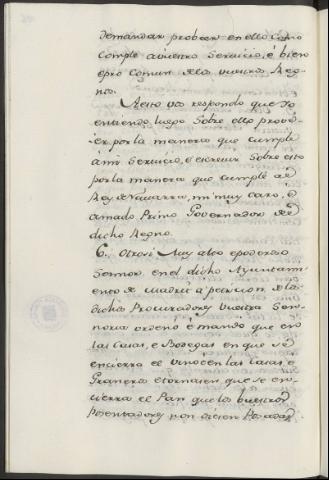 demandar probeer en ello como
comple a vuestro servicio, é bien
é pro comun de los vuestros Reg-
nos.
A esto vos respondo que Yo
entiendo luego sobre ello prove-
er por la manera que cumple
á mi servicio, é escreuir sobre esto
por la manera que cumple al
Rey de Navarra, mi muy caro, é
amado Primo Governador del
dicho Regno.
6. Otrosi Muy alto é poderoso
Sennor en el dicho Ayuntam-
iento de Madrit á peticion de los
dichos Procuradores vuestra Sen-
noria ordenó é mandó que en
las Casas, é Bodegas en que se
encierra el vino en las tales, é
Graneros é tornasen que se en-
cierra el Pan que los vuestros
Posentadores non diesen Posadas